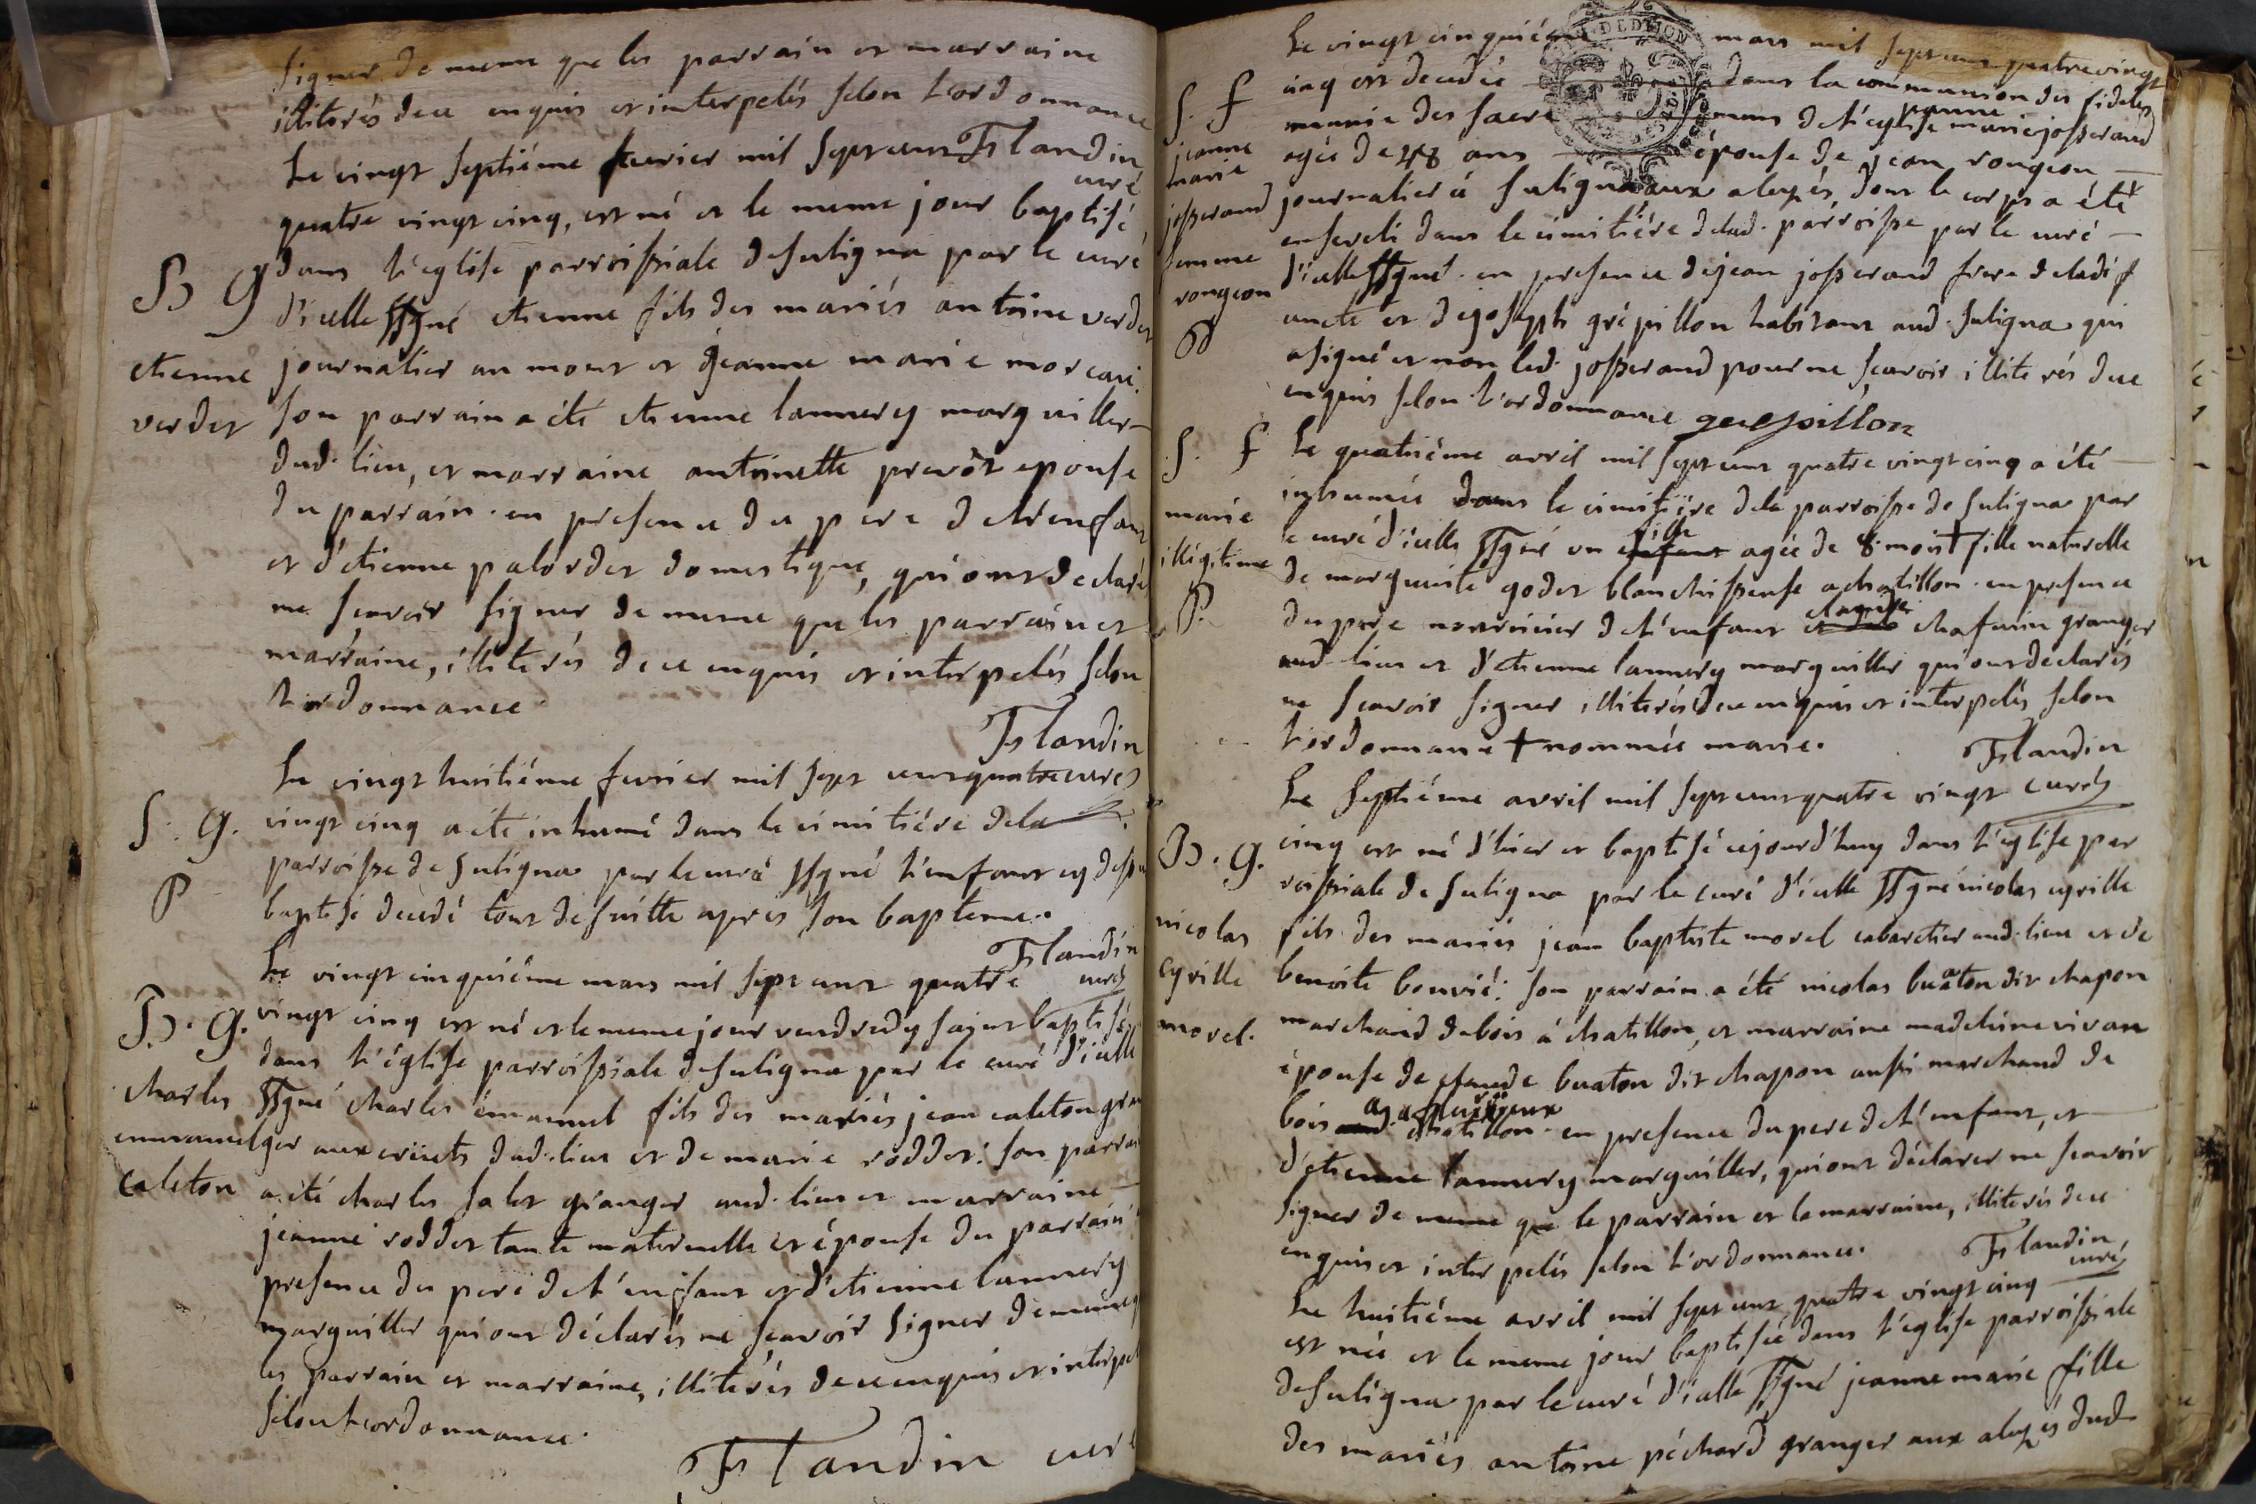 signer de meme que les parrain et marraine
illiterés de ce enquis et interpelés selon l'ordonnance
Flandin
curé
Le vingt septiéme fevrier mil sept cent
quatre vingt cinq, est né et le meme jour baptisé
dans l'eglise parroissiale de suligna par le curé
d'icelle ssgné etienne fils des mariés antoine verdet
journalier au mont et jeanne marie moreau.
son parrain a été etienne lannery marguiller
dud. lieu, et marraine antoinette prevôt epouse
du parrain. en presence du pere de l'enfant
et d'etienne palordet domestique, qui ont declaré
ne scavoir signer de meme que les parrain et
marraine, illiterés de ce enquis et interpelés selon
l'ordonnance
B G
etienne
verdet
Flandin
curé
Le vingt huitiéme fevrier mil sept cent quatre
vingt cinq a eté inhumé dans le cimitiére de la
parroisse de suligna par le curé ssgné l'enfant cy dessu
baptisé decedé tout de suitte apres son bapteme.
S. G.
P
Flandin
curé
Le vingt cinquiéme mars mil sept cent quatre
vingt cinq est né et le meme jour vendredy saint baptisé
dans l'église parroissiale de suligna par le curé d'icelle
ssgné charles émanuel fils des mariés jean caleton gran
ger aux criuets dud. lieu et de marie roddet. son parrai
a été charles salet granger aud. lieu et marraine
jeanne roddet tante maternelle et épouse du parrain
presence du pere de l'enfant et d'etienne lannery
marguiller qui ont déclarés ne scavoir signer de meme q
les parrain et marraine, illiterés de ce enquis et interpel
selon l'ordonnance.
B. G.
charles
emmanuel
Caleton
Flandin curé
Le vingt cinquiéme mars mil sept cent quatre vingt
cinq est decedée dans la communion des fideles
munie des sacre mens de l'eglise jeanne marie josserand
agée de 48 ans épouse de jean rongeon
journalier à suligna aux alezés, dont le corps a été
enseveli dans le cimitiére de lad. parroisse par le curé
d'icelle ssgné. en presence de jean josserand frere de la déf
uncte et de joseph grépillon habitant aud. suligna qui
a signé et non led. josserand pour ne scavoir illiterés de ce
enquis selon l'ordonnance grespillon
S. f
jeanne
marie
josserand
femme
rongeon
P
Le quatriéme avril mil sept cent quatre vingt cinq a été
inhumée dans le cimitiére de la parroisse de suligna par
le curé d'icelle ssgné un enfant fille agée de 8 mois + fille naturelle
de marguerite godet blanchisseuse a chatillon. en presence
du pere nourricier de l'enfant et chafurin granger
aud. lieu et d'etienne lannery marguiller qui ont declarés
ne scavoir signer illiterés de ce enquis et interpelés selon
l'ordonnance + nommée marie.
S. f
marie
illégitime
P.
Flandin
curé
Le septiéme avril mil sept cent quatre vingt
cinq est né d'hier et baptisé cejourd'huy dans l'eglise par
roissiale de suligna par le curé d'icelle ssgné nicolas cyrille
fils des mariés jean baptiste morel cabaretier aud. lieu et de
benoite bouvié: son parrain a été nicolas buaton dit chapon
marchand de bois à chatillon, et marraine madeleine vivan
épouse de claude buaton dit chapon aussi marchand de
bois aud. chatillon. en presence du pere de l'enfant, et
d'etienne lannery marguiller, qui ont déclarer ne scavoir
signer de meme que le parrain et la marraine, illiterés de ce
enquis et interpelés selon l'ordonnance.
B. G.
nicolas
cyrille
morel.
Flandin
curé
Le huitiéme avril mil sept cent quatre vingt cinq
est née et le meme jour baptisée dans l'eglise parroissiale
de suligna par le curé d'icelle ssgné jeanne marie fille
des mariés antoine péchard granger aux alezés dud